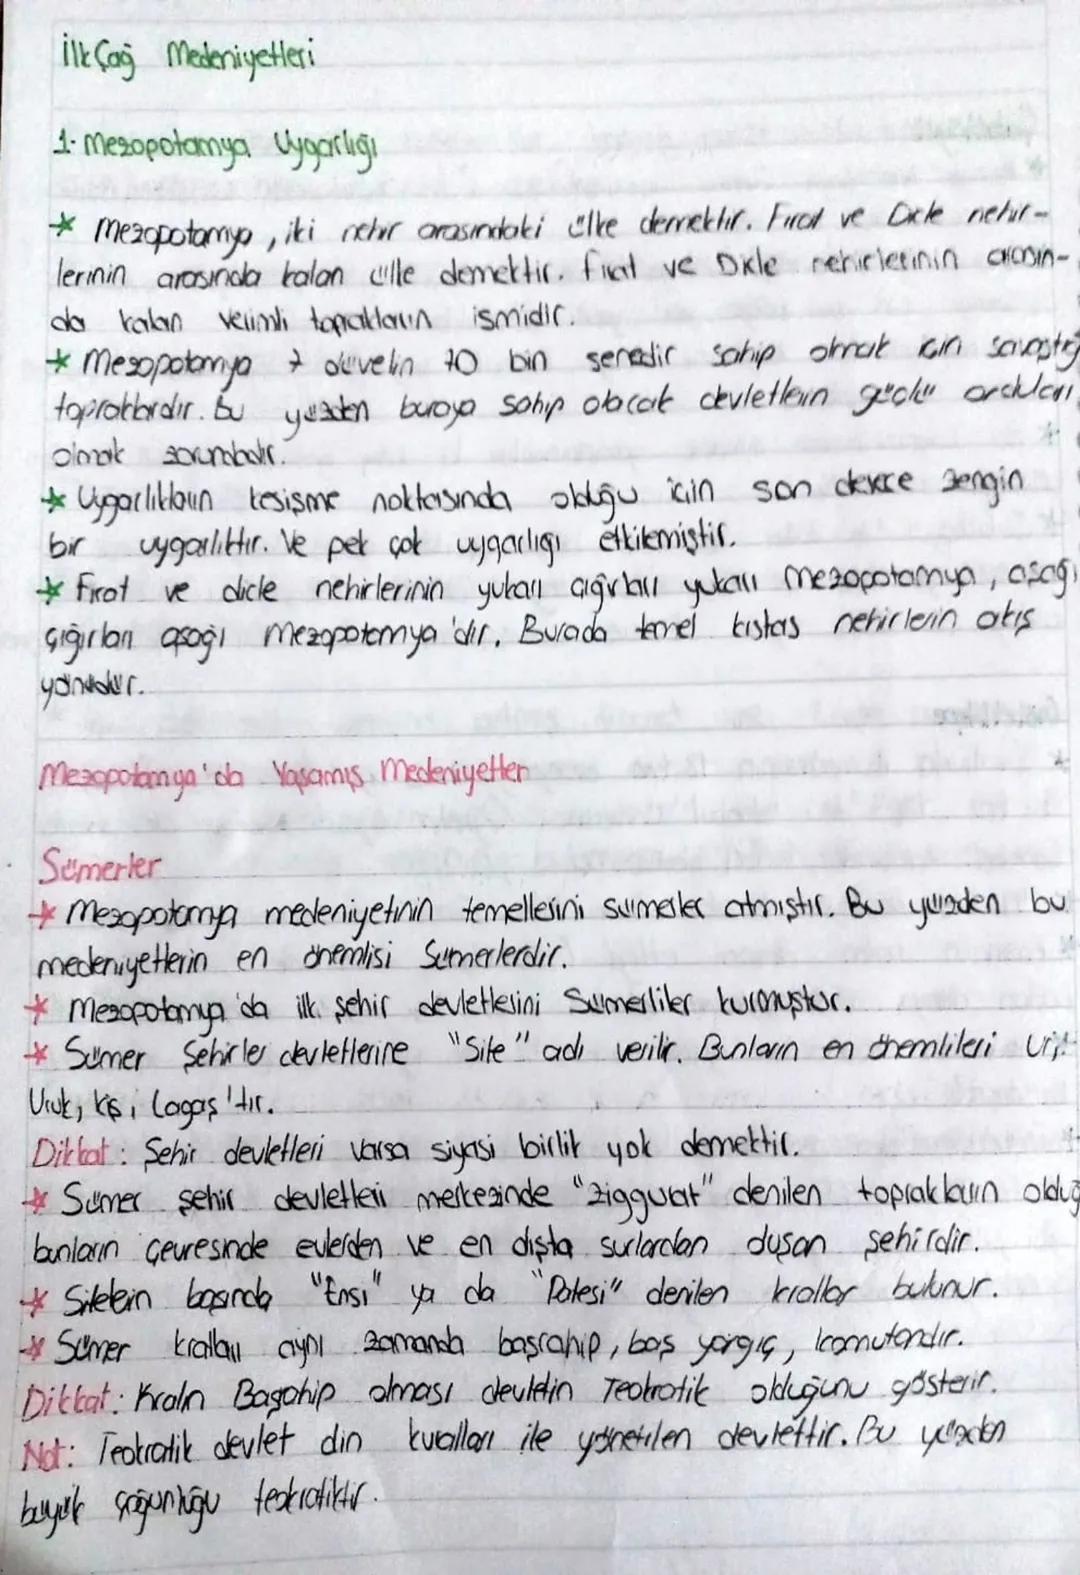 İlk Çağ Medeniyetleri
1- Mezopotamya Uygarlığı
* Mezopotamya, iki nehir arasındaki ülke demektir. Fırat ve Dicle nehir-
lerinin arasında kalan ülke demektir. Fırat ve Dicle nehirlerinin arasın-
da kalan verimli toprakların ismidir.
* Mezopotamya 7 düvelin 10 bin senedir sahip olmak için savaştığ
topraklardır. Bu yüzden buraya sahip olacak devletlerin güçlü orduları
olmak zorundadır.
* Uygarlıkların kesişme noktasında olduğu için son derece zengin
bir uygarlıktır. Ve pek çok uygarlığı etkilemiştir.
* Fırat ve dicle nehirlerinin yukarı çığırları yukarı Mezopotamya, aşağı
çığırları aşağı Mezopotamya'dır. Burada temel kıstas nehirlerin akış
yönüdür.
Mezopotamya'da Yaşamış Medeniyetler
Sümerler
* Mezopotamya medeniyetinin temellerini sümerler atmıştır. Bu yüzden bu
medeniyetlerin en önemlisi Sümerlerdir.
* Mezopotamya'da ilk şehir devletlerini Sümerliler kurmuştur.
* Sümer Şehirler devletlerine "Site" adı verilir. Bunların en önemlileri
Uruk, Kiş, Lagaş'tır.
Dikkat: Şehir devletleri varsa siyasi birlik yok demektir.
* Sümer şehir devletleri merkezinde "Ziggurat" denilen toprakların olduğ
bunların çevresinde evlerden ve en dışta surlardan duşan şehirdir.
* Sitelerin başında "Ensi" ya da "Patesi" denilen krallar bulunur.
* Sümer kralları aynı zamanda başrahip, baş yargıç, komutandır.
Dikkat: Kralın Başahip olması devletin Teokratik olduğunu gösterir.
Not: Teokratik devlet din kuralları ile yönetilen devlettir. Bu yüzden
büyük çoğunluğu teokratiktir.